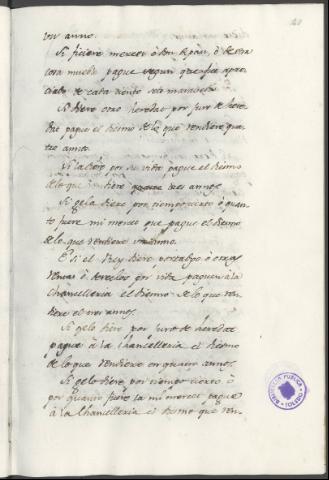 un anno.
Si ficiere merced de pan, o de otra
cosa mueda pague segun que fue apre-
ciado de cada ciento seis maravedis
Si diere otro heredad por juro de here-
dat pague el diesmo de lo que rendiere qua-
tro annos.
Si la diere por su vida pague el diesmo
de lo que rendiere tres annos.
Si gela diere por tiempo cierto o quan-
to fuere mi merced que pague el diesmo
de lo que rendiere un anno.
E si el Rey diere portadgo o otras
rentas o derechos por vida paguen a la
Chancelleria el diesmo de lo que ren-
diere en tres annos.
Si gelo diere por juro de heredat
pague a la Chancelleria el diesmo
de lo que rendiere en quatro annos.
Si gelo diere por tiempo cierto o
por quanto fuere la mi merced pague
a la Chancelleria el diesmo que ren-
BIBLIOTECA PUBLICA
TOLEDO